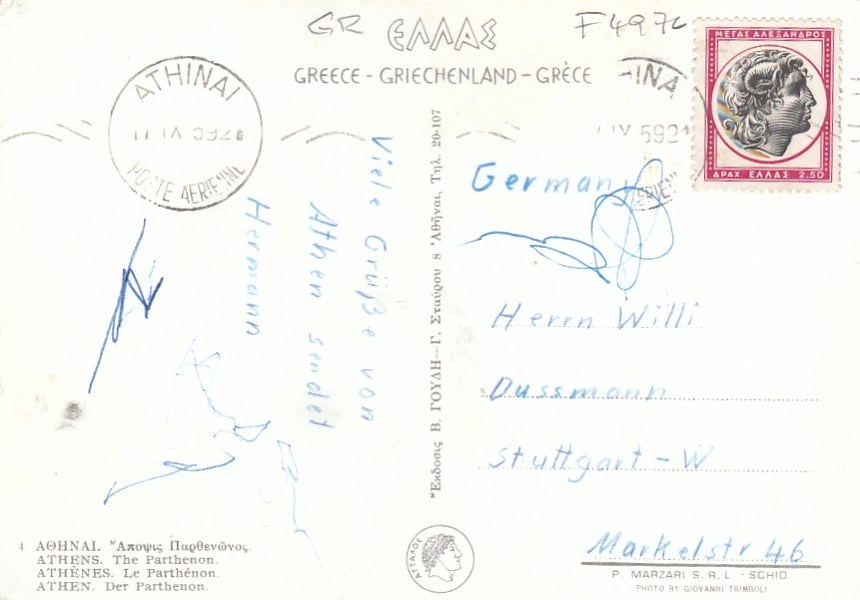 GR
F497c
ΕΛΛΑΣ
GREECE - GRIECHENLAND - GRÈCE
ΜΕΓΑΣ ΑΛΕΞΑΝΔΡΟΣ
ΔΡΑΧ. ΕΛΛΑΣ 2.50
ATHINAI
POSTE AERIENNE
INA
IV 5921
ERIEN
Viele Grüße von
Athen sendet
Hermann
Ἔκδοσις Β. ΓΟΥΔΗ—Γ. Σταύρου 8 Ἀθῆναι, Τηλ. 20-107
Germany
Herrn Willi
Dussmann
Stuttgart - W
Markelstr 46
4 ΑΘΗΝΑΙ. Ἄποψις Παρθενῶνος.
ATHENS. The Parthenon.
ATHÈNES. Le Parthénon.
ATHEN. Der Parthenon.
ΑΤΤΑΛΟΣ
P. MARZARI S.R.L - SCHIO
PHOTO BY GIOVANNI TRIMBOLI